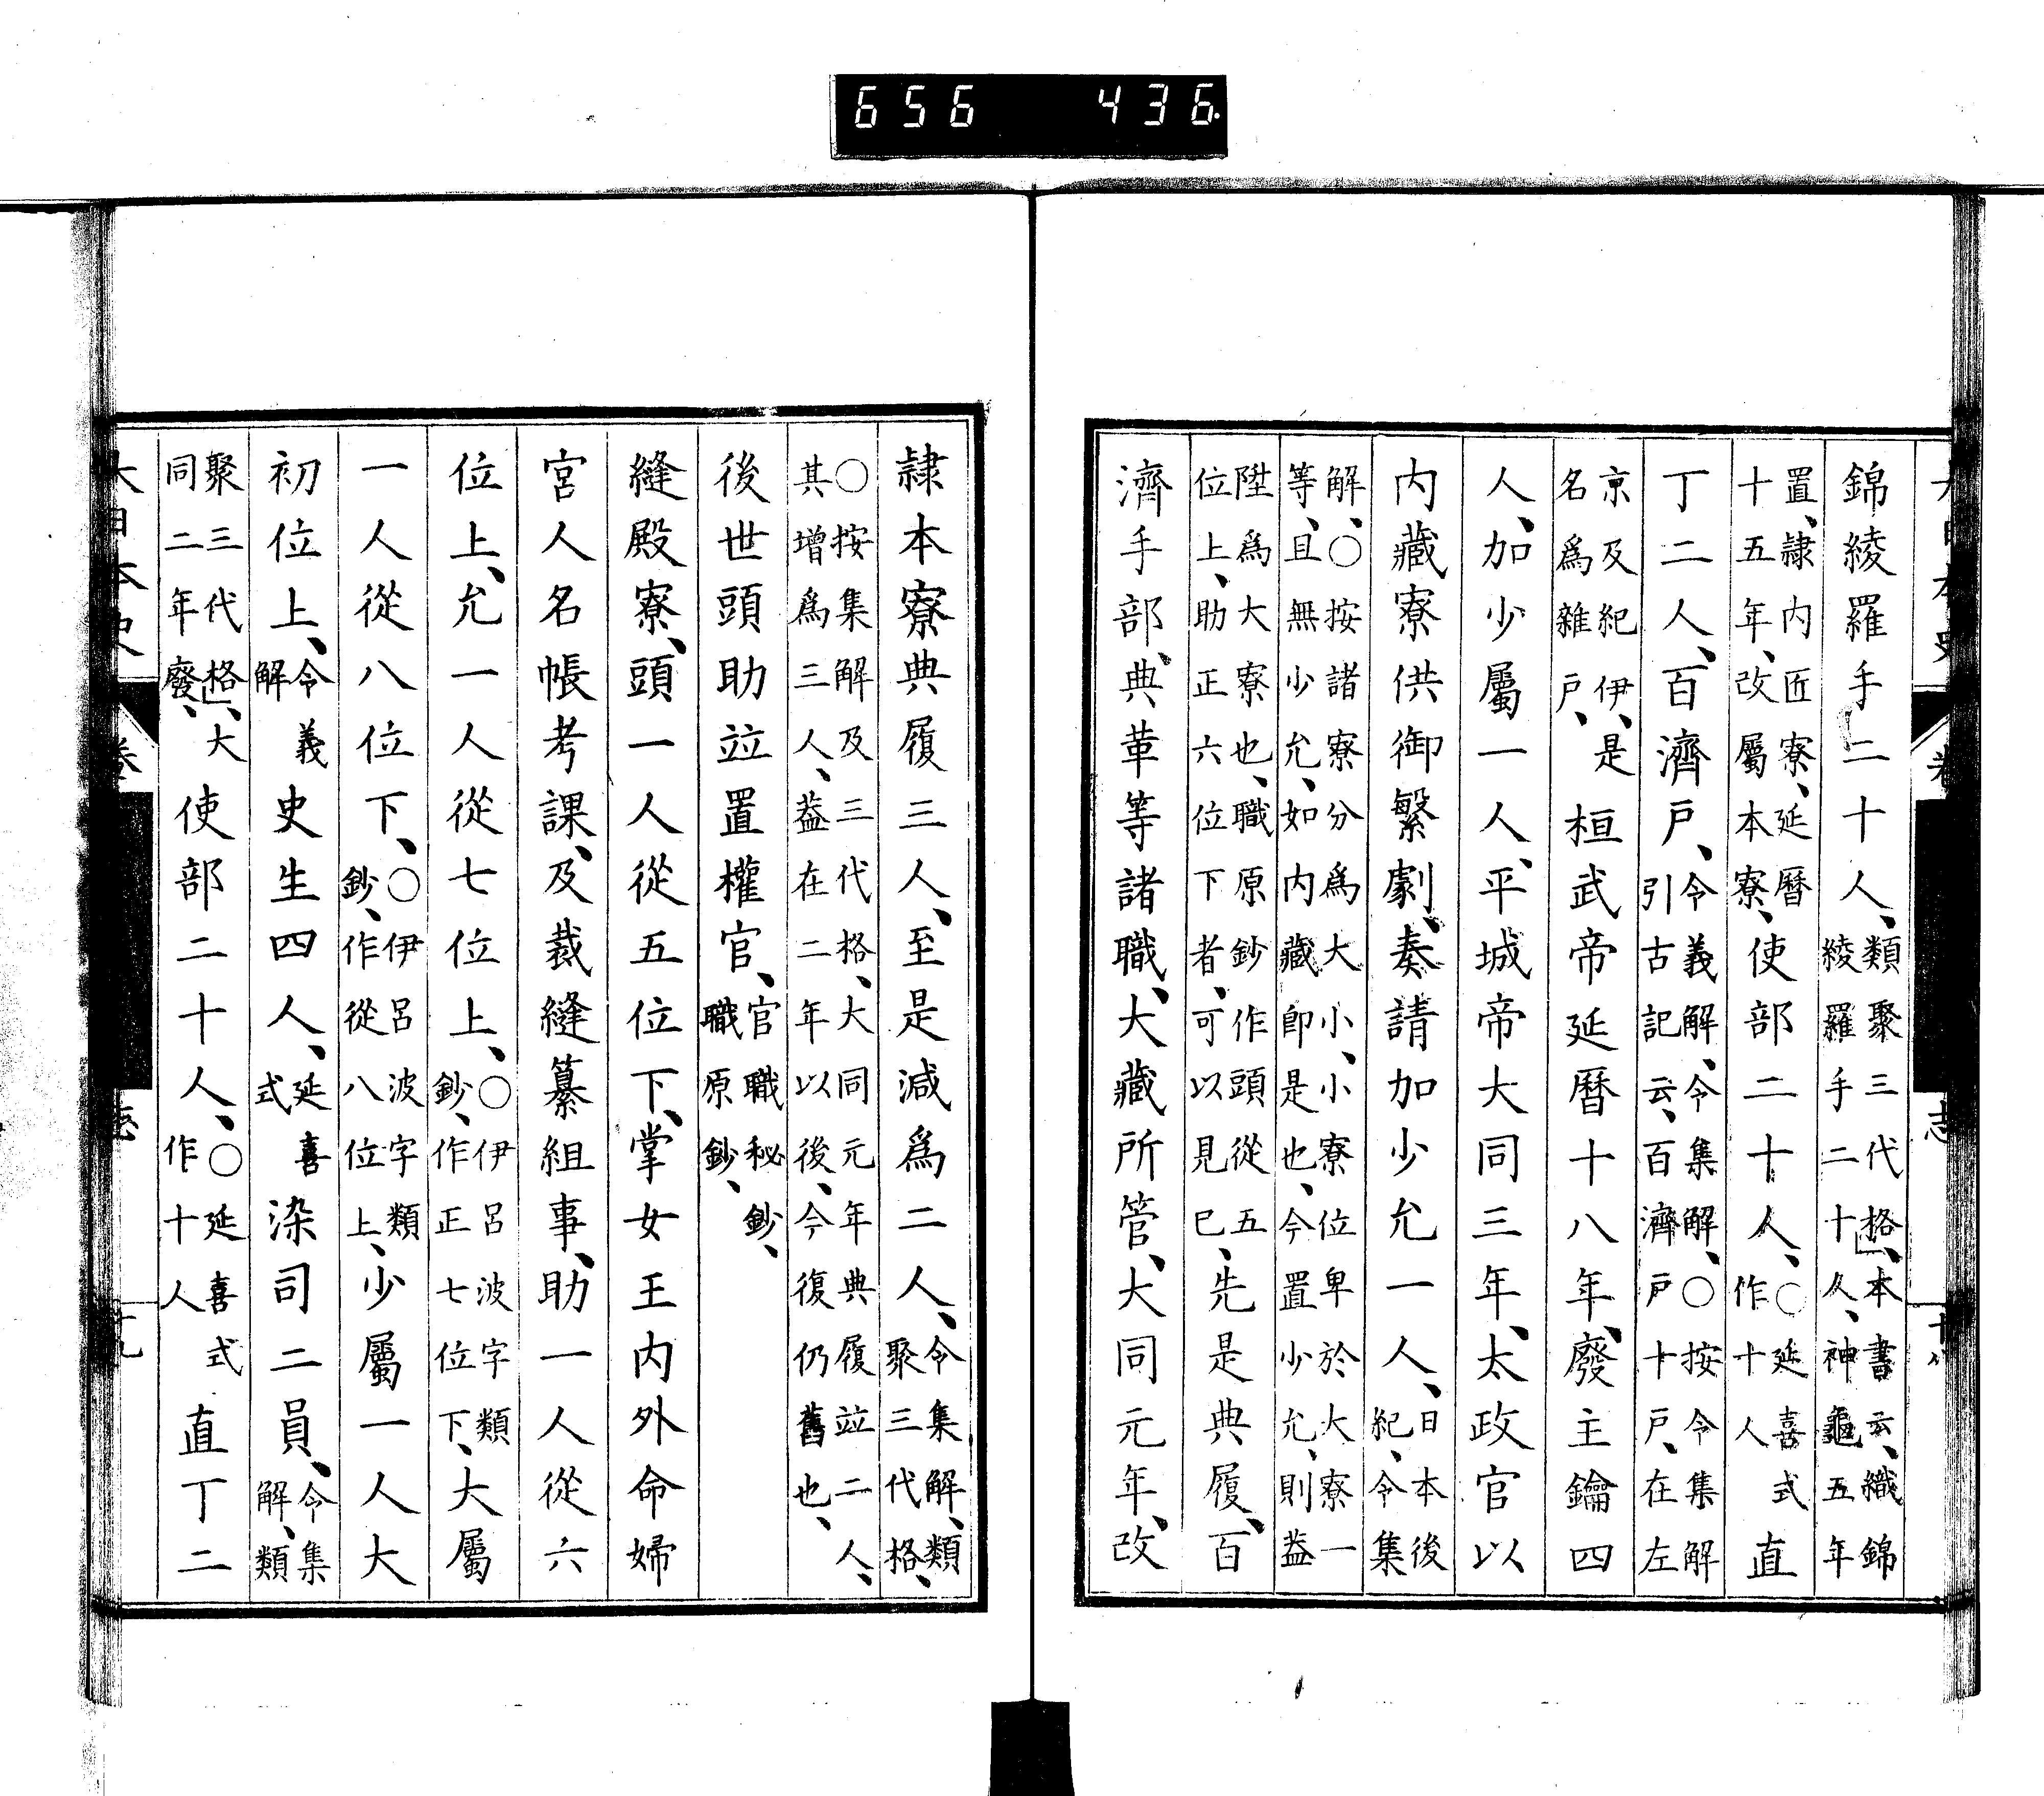 656 436
錦綾羅手二十人、類聚三代格、本書云、織錦綾羅手二十人、神龜五年
置、隷内匠寮、延曆十五年、改屬本寮、使部二十人、○延喜式作十人直
丁二人、百濟戸、令義解、令集解、○按令集解引古記云、百濟戸十戸、在左
京及紀伊、是名爲雜戸、桓武帝延曆十八年、廢主鑰四
人、加少屬一人、平城帝大同三年、太政官以
内藏寮供御繁劇、奏請加少允一人、日本後紀、令集
解、○按諸寮分爲大小、小寮位卑於大寮一等、且無少允、如内藏卽是也、今置少允、則葢
陞爲大寮也、職原鈔作頭從五位上、助正六位下者、可以見已、先是典履、百
濟手部、典革等諸職、大藏所管、大同元年、改
隷本寮典履三人、至是減爲二人、令集解、類聚三代格、
○按集解及三代格、大同元年典履竝二人、其增爲三人、葢在二年以後、今復仍舊也、
後世頭助竝置權官、官職秘鈔、職原鈔、
縫殿寮、頭一人從五位下、掌女王内外命婦
宮人名帳考課、及裁縫纂組事、助一人從六
位上、允一人從七位上、○伊呂波字類鈔、作正七位下、大屬
一人從八位下、○伊呂波字類鈔、作從八位上、少屬一人大
初位上、令義解史生四人、延喜式染司二員、令集解、類
聚三代格、大同二年廢、使部二十人、○延喜式作十人直丁二
大日本史 卷 志 十九